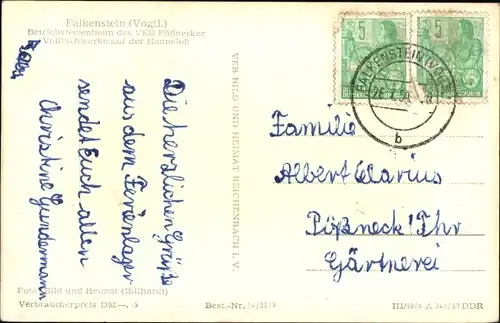 Falkenstein (Vogtl.)
Betriebsferienheim des VEB Pößnecker
Volltuchwerke auf der Hanneloh
Die herzlichen Grüße
aus dem Ferienlager
sendet Euch allen
Christine Gundermann
VEB BILD UND HEIMAT REICHENBACH I. V.
5
5
FALKENSTEIN (VOGTL)
b
Familie
Albert Clarius
Pößneck / Thr
Gärtnerei
Foto: Bild und Heimat (Billhardt)
Verbraucherpreis DM —,15
Best.-Nr. 14/5019
DDR